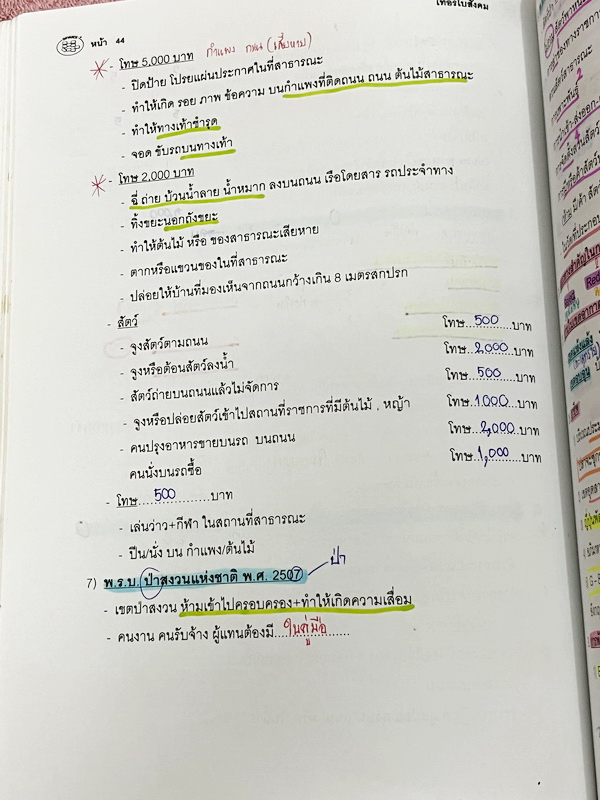 เทอร์โบสังคม
หน้า 44
- โทษ 5,000 บาท กำแพง ถนน (เสียหาย)
- ปิดป้าย โปรยแผ่นประกาศในที่สาธารณะ
- ทำให้เกิด รอย ภาพ ข้อความ บนกำแพงที่ติดถนน ถนน ต้นไม้สาธารณะ
- ทำให้ทางเท้าชำรุด
- จอด ขับรถบนทางเท้า
- โทษ 2,000 บาท
- ฉี่ ถ่าย บ้วนน้ำลาย น้ำหมาก ลงบนถนน เรือโดยสาร รถประจำทาง
- ทิ้งขยะนอกถังขยะ
- ทำให้ต้นไม้ หรือ ของสาธารณะเสียหาย
- ตากหรือแขวนของในที่สาธารณะ
- ปล่อยให้บ้านที่มองเห็นจากถนนกว้างเกิน 8 เมตรสกปรก
- สัตว์
- จูงสัตว์ตามถนน โทษ...500...บาท
- จูงหรือต้อนสัตว์ลงน้ำ โทษ...2,000...บาท
- สัตว์ถ่ายบนถนนแล้วไม่จัดการ โทษ...500...บาท
- จูงหรือปล่อยสัตว์เข้าไปสถานที่ราชการที่มีต้นไม้ , หญ้า โทษ...1000...บาท
- คนปรุงอาหารขายบนรถ บนถนน โทษ...2,000...บาท
คนนั่งบนรถซื้อ โทษ...1,000...บาท
- โทษ...500...บาท
- เล่นว่าว+กีฬา ในสถานที่สาธารณะ
- ปีน/นั่ง บน กำแพง/ต้นไม้
7) พ.ร.บ. ป่าสงวนแห่งชาติ พ.ศ. 2507 ป่า
- เขตป่าสงวน ห้ามเข้าไปครอบครอง+ทำให้เกิดความเสื่อม
- คนงาน คนรับจ้าง ผู้แทนต้องมี...ใบคู่มือ...